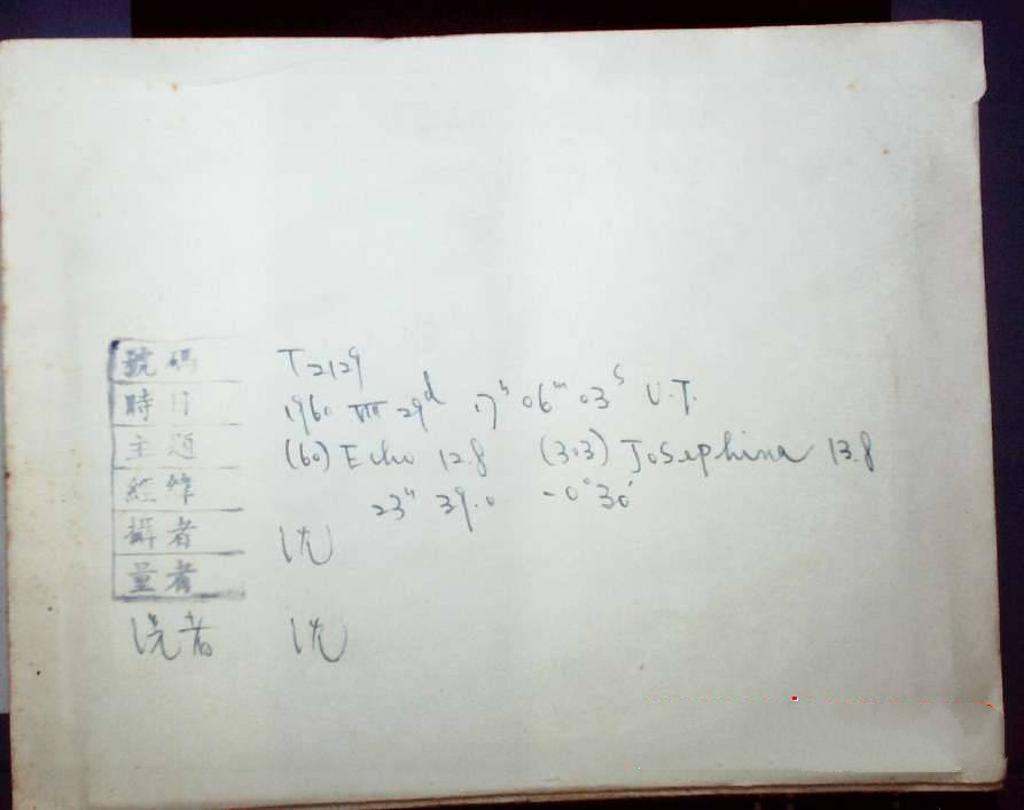 號碼 T2129
時日 1960 VIII 29d 17h 06m 03s U.T.
主題 (60) Echo 12.8 (303) Josephina 13.8
經緯 23h 39.0 -0°30'
攝者 沈
量者
洗者 沈